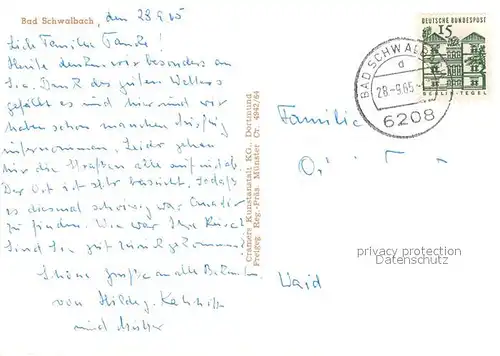 Bad Schwalbach, den 28.9.65
Liebe Familie
Heute denken wir besonders an
Sie. Dank des guten Wetters
gefällt es uns hier und wir
haben schon manchen Ausflug
unternommen. Leider gehen
mir die Straßen alle auf und ab.
Der Ort ist sehr besucht, sodaß
es diesmal schwierig war Quartier
zu finden. Wie war Ihre Reise?
Sind Sie gut zurückgekommen?
Schöne Grüße an alle Bekannten
von Hildeg.
und Mutter
Cramers Kunstanstalt KG., Dortmund
Freigeg. Reg.-Präs. Münster Cr. 4942/64
DEUTSCHE BUNDESPOST
15
BERLIN-TEGEL
BAD SCHWALB
a
28.-9.65.-
6208
Familie
O
privacy protection
Datenschutz
Waid